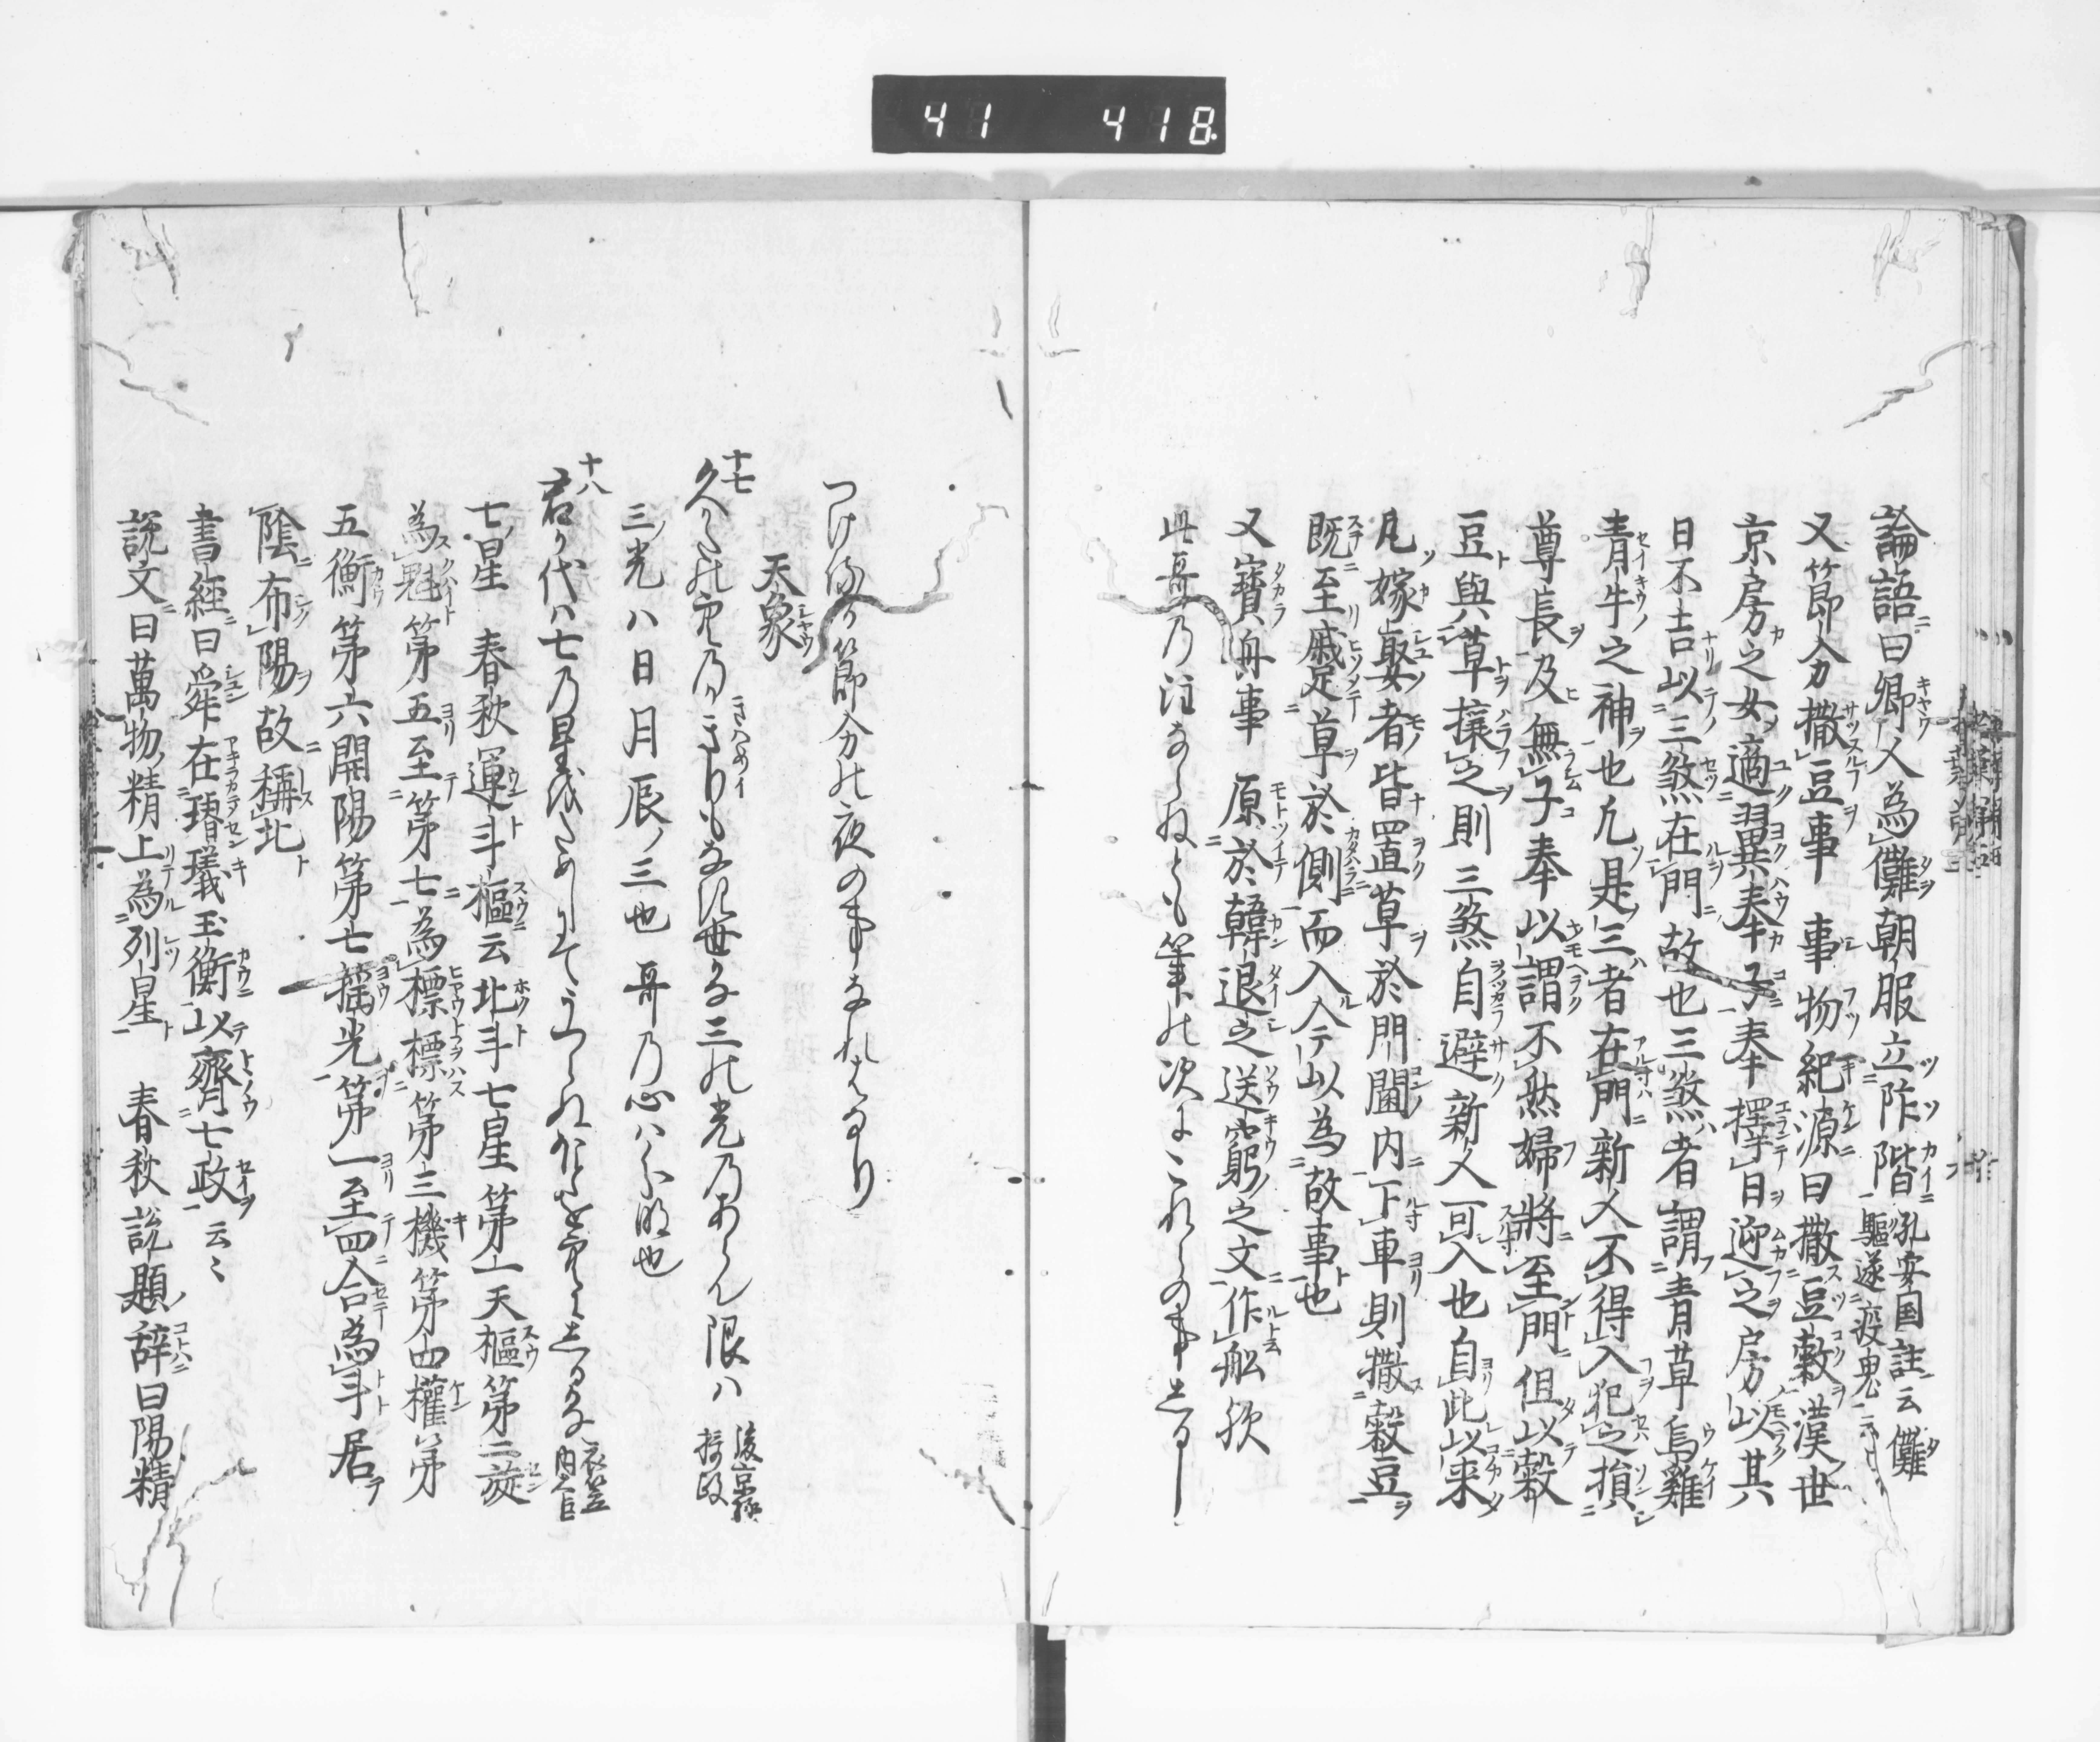 41 418
論語曰郷人為儺朝服立阼階孔安国註云儺駆逐疫鬼云々
又節分撒豆事 事物紀源曰撒豆穀漢世
京房之女適翼奉子奉擇日迎之房以其
日不吉以三煞在門故也三煞者謂青草烏雞
青牛之神也凡是三者在門新人不得入犯之損
尊長及無子奉以謂不然婦將至門但以穀
豆與草攘之則三煞自避新人可入也自此以来
凡嫁娶者皆置草於門閫内下車則撒穀豆
既至蹙草於側而入今以為故事也
又寳舟事 原於韓退之送窮之文作舩欤
此哥乃注なしぬとも筆の次にこれらの事しるし
つけ侍る節分の夜の事なれはなり
天象
十七
久かたの宮のきりもなき世かな三の光のあらん限ハ 後京極摂政
三光ハ日月辰ノ三也哥乃心ハ分明也
十八
君か代ハ七乃星 内大臣
七星 春秋運斗樞云北斗七星第一天樞第二旋
第三機第四權第
五衡第六開陽第七揺光第一至四
為魁第五至第七為標標
合為斗居
陰布陽故稱北
書經曰舜在璿璣玉衡以齊七政云々
説文曰萬物精上為列星 春秋説題辞曰陽精